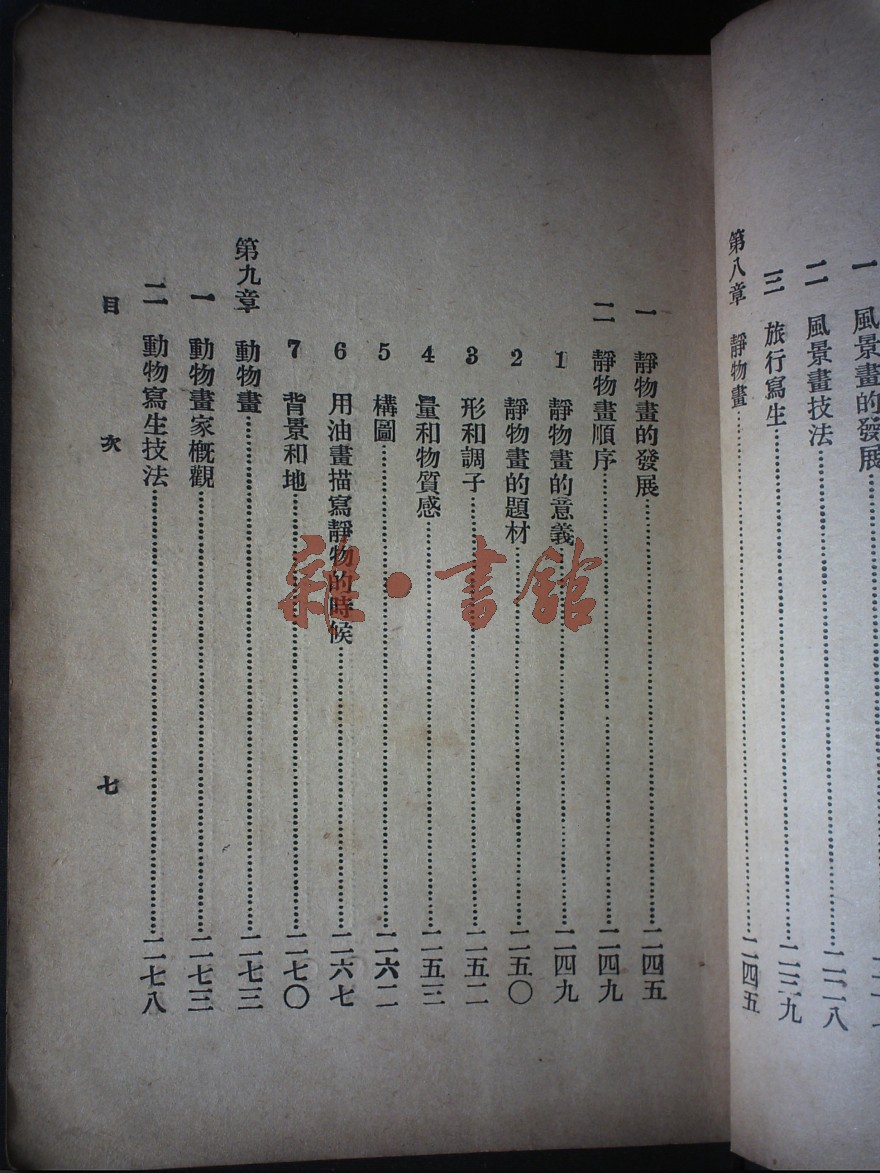 一 風景畫的發展
二 風景畫技法……二二八
三 旅行寫生……二三九
第八章 靜物畫……二四五
一 靜物畫的發展……二四五
二 靜物畫順序……二四九
1 靜物畫的意義……二四九
2 靜物畫的題材……二五〇
3 形和調子……二五二
4 量和物質感……二五三
5 構圖……二六二
6 用油畫描寫靜物的時候……二六七
7 背景和地……二七〇
第九章 動物畫……二七三
一 動物畫家概觀……二七三
二 動物寫生技法……二七八
目次 七
雜·書館